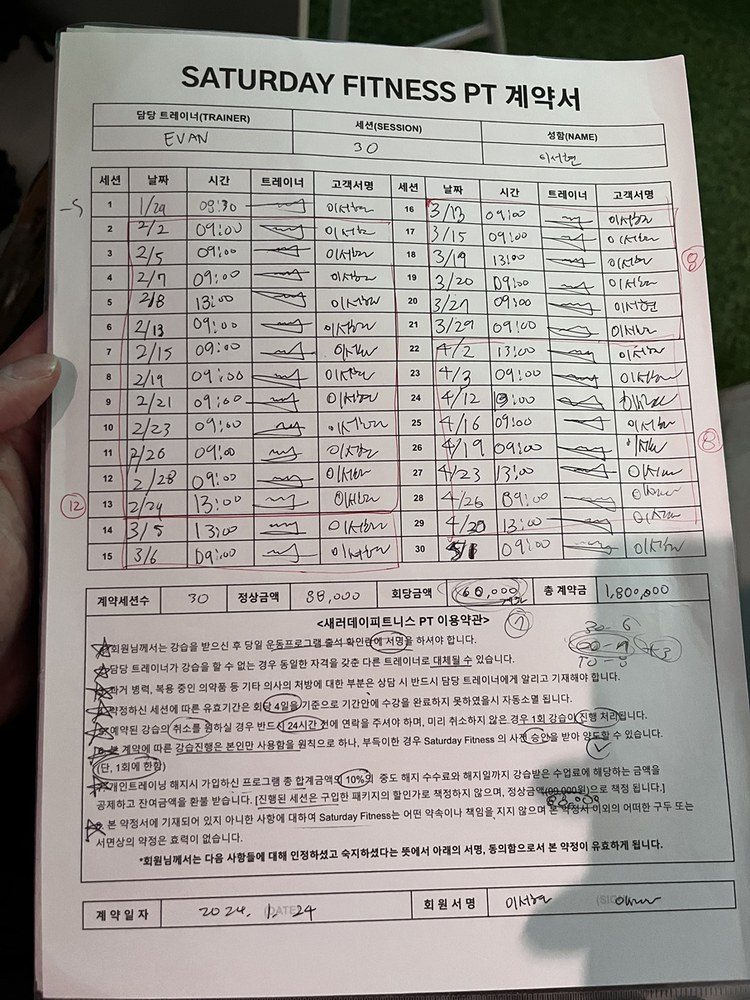 SATURDAY FITNESS PT 계약서
담당 트레이너(TRAINER) 세션(SESSION) 성함(NAME)
EVAN 30 이서현
세션 날짜 시간 트레이너 고객서명 세션 날짜 시간 트레이너 고객서명
1 1/29 08:30 이서현 16 3/13 09:00 이서현
2 2/2 09:00 이서현 17 3/15 09:00 이서현
3 2/5 09:00 이서현 18 3/19 13:00 이서현
4 2/7 09:00 이서현 19 3/20 09:00 이서현
5 2/8 13:00 이서현 20 3/27 09:00 이서현
6 2/13 09:00 이서현 21 3/29 09:00 이서현
7 2/15 09:00 이서현 22 4/2 13:00 이서현
8 2/19 09:00 이서현 23 4/3 09:00 이서현
9 2/21 09:00 이서현 24 4/12 이서현
10 2/23 09:00 이서현 25 4/16 09:00 이서현
11 2/26 09:00 이서현 26 4/19 09:00 이서현
12 2/28 09:00 이서현 27 4/23 13:00 이서현
⑫ 13 2/29 13:00 이서현 28 4/26 09:00 이서현
14 3/5 13:00 이서현 29 13:00 이서현
15 3/6 09:00 이서현 30 09:00 이서현
⑧
계약세션수 30 정상금액 88,000 회당금액 60,000 총 계약금 1,800,000
<새러데이피트니스 PT 이용약관>
회원님께서는 강습을 받으신 후 당일 운동프로그램 출석 확인란에 서명을 하셔야 합니다.
담당 트레이너가 강습을 할 수 없는 경우 동일한 자격을 갖춘 다른 트레이너로 대체될 수 있습니다.
과거 병력, 복용 중인 의약품 등 기타 의사의 처방에 대한 부분은 상담 시 반드시 담당 트레이너에게 알리고 기재해야 합니다.
약정하신 세션에 따른 유효기간은 회당 4일을 기준으로 기간안에 수강을 완료하지 못하였을시 자동소멸 됩니다.
예약된 강습의 취소를 원하실 경우 반드시 24시간 전에 연락을 주셔야 하며, 미리 취소하지 않은 경우 1회 강습이 진행 처리됩니다.
본 계약에 따른 강습진행은 본인만 사용함을 원칙으로 하나, 부득이한 경우 Saturday Fitness 의 사전 승인을 받아 양도할 수 있습니다.
(단, 1회에 한함)
개인트레이닝 해지시 가입하신 프로그램 총 합계금액의 10%의 중도 해지 수수료와 해지일까지 강습받은 수업료에 해당하는 금액을
공제하고 잔여금액을 환불 받습니다. [진행된 세션은 구입한 패키지의 할인가로 책정하지 않으며, 정상금액(99,000원)으로 책정 됩니다.]
88,000
본 약정서에 기재되어 있지 아니한 사항에 대하여 Saturday Fitness는 어떤 약속이나 책임을 지지 않으며 본 약정서 이외의 어떠한 구두 또는
서면상의 약정은 효력이 없습니다.
*회원님께서는 다음 사항들에 대해 인정하셨고 숙지하셨다는 뜻에서 아래의 서명, 동의함으로서 본 약정이 유효하게 됩니다.
계약일자 2024. 1. 24 (DATE) 회원서명 이서현